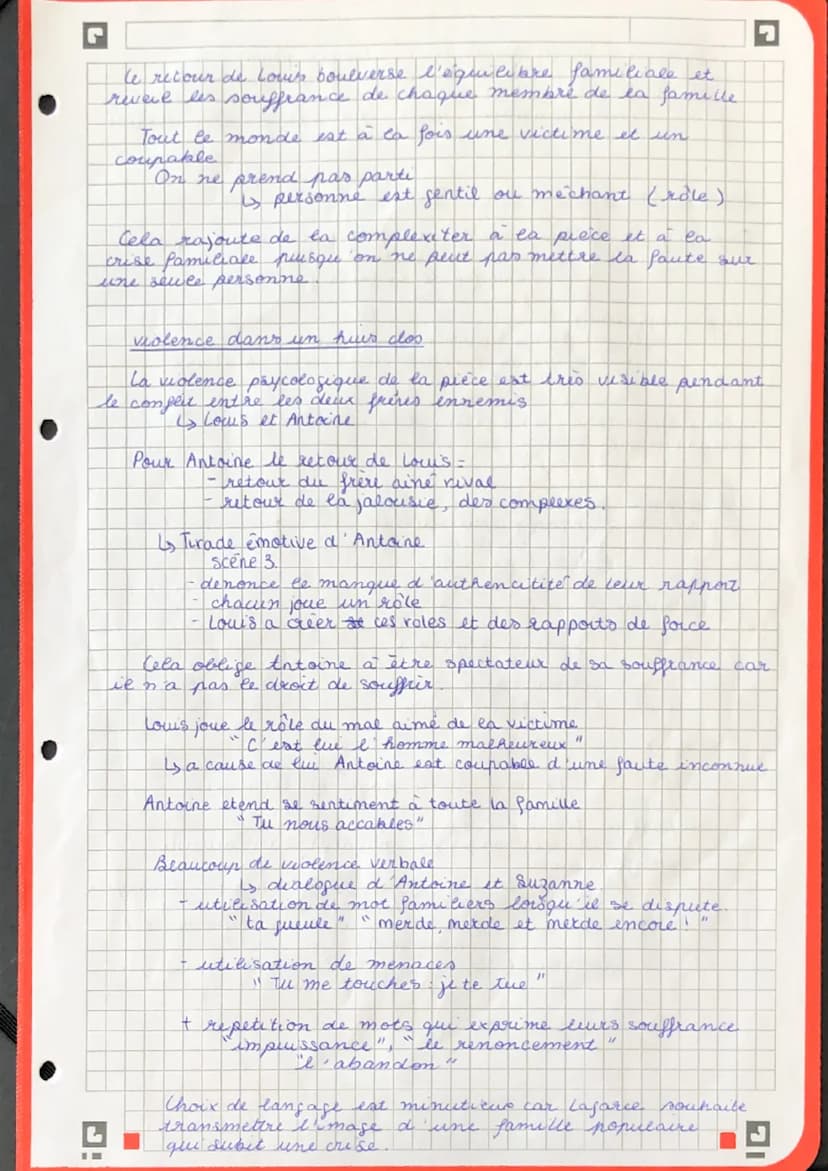 Le retour de Louis bouleverse l'équilibre familiale et
reveile les souffrance de chaque membre de la famille
Tout le monde est à la fois une victime et un
coupable
On ne prend pas parti
↳ personne est gentil ou méchant (rôle)
Cela rajoute de la complexiter à la pièce et à la
crise familiale puisqu'on ne peut pas mettre la faute sur
une seule personne.
violence dans un huis clos
La violence psycologique de la pièce est très visible pendant
le conflit entre les deux frères ennemis
↳ Louis et Antoine
Pour Antoine le retour de Louis =
- retour du frère ainé rival
- retour de la jalousie, des complexes.
↳ Tirade émotive d'Antoine
scène 3.
- denonce le manque d'authencitité de leur rapport
- chacun joue un rôle
- Louis a créer ces roles et des rapports de force
Cela oblige Antoine à être spectateur de sa souffrance car
il n'a pas le droit de souffrir.
Louis joue le rôle du mal aimé de la victime
"C'est lui l'homme malheureux"
↳ a cause de lui Antoine est coupable d'une faute inconnue
Antoine etend se sentiment à toute la famille
"Tu nous accables"
Beaucoup de violence verbale
↳ dialogue d'Antoine et Suzanne
- utilisation de mot familiers lorsqu'il se dispute.
"ta gueule" "merde, merde et merde encore!"
- utilisation de menaces
"Tu me touches : je te tue"
+ repetition de mots qui exprime leurs souffrance
"impuissance", "le renoncement"
"l'abandon"
Choix de langage est minutieux car Lagarce souhaite
transmettre l'image d'une famille populaire
qui subit une crise.